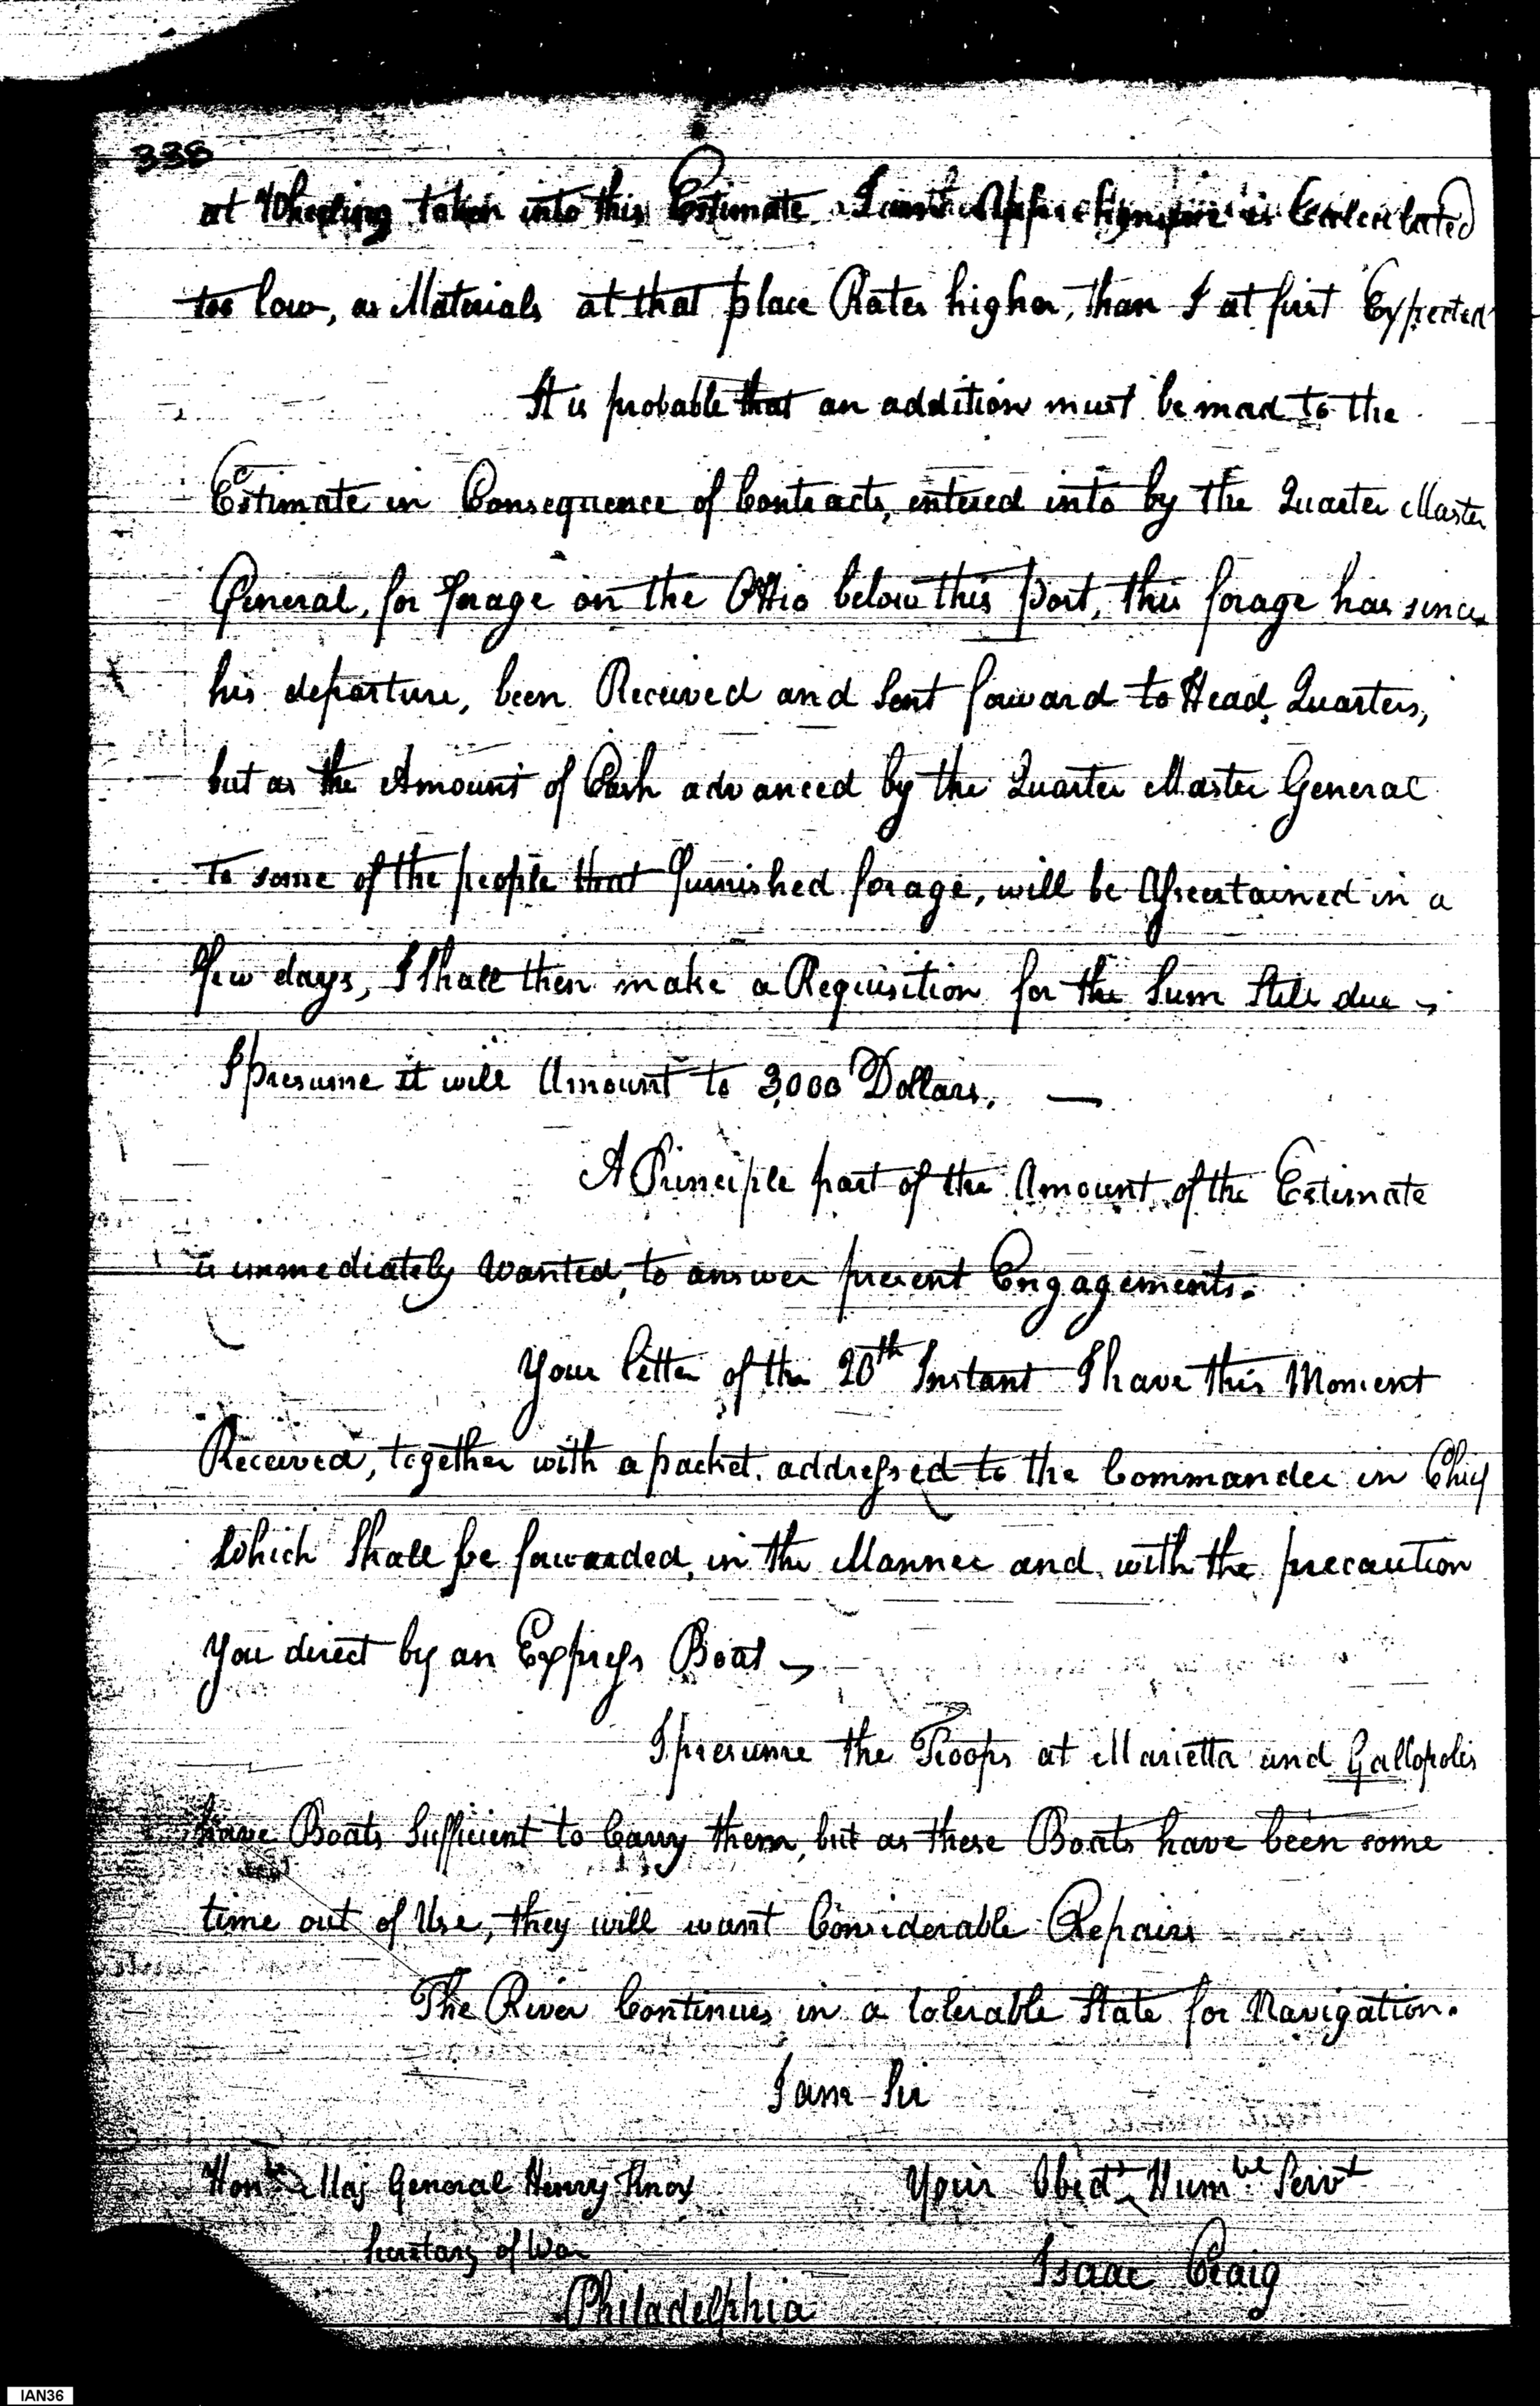 338
at Wheeling taken into this Estimate I is Calculated
too low, as Materials at that place Rates higher, than I at first Expected
It is probable that an addition must be mad to the
Estimate in Consequence of Contracts, entered into by the Quarter Master
General, for forage on the Ohio below this post, this forage has since
his departure, been Received and Sent forward to Head Quarters,
but as the Amount of Cash advanced by the Quarter Master General
to some of the people that furnished forage, will be Ascertained in a
few days, I Shall then make a Requisition for the Sum Still due
I presume it will Amount to 3,000 Dollars. —
A Principle part of the Amount of the Estimate
is immediately Wanted, to answer present Engagements.
Your letter of the 20th Instant I have this Moment
Received, together with a packet, addressed to the Commander in Chief
Which Shall be forwarded, in the Manner and with the precaution
You direct by an Express Boat —
I presume the Troops at Marietta and Gallopolis
have Boats Sufficient to Carry them, but as these Boats have been some
time out of Use, they will want Considerable Repairs
The River Continues in a tolerable State for Navigation.
I am Sir
Honble Maj General Henry Knox Your Obedt Humble Servt
Secretary of War
Isaac Craig
Philadelphia
IAN36